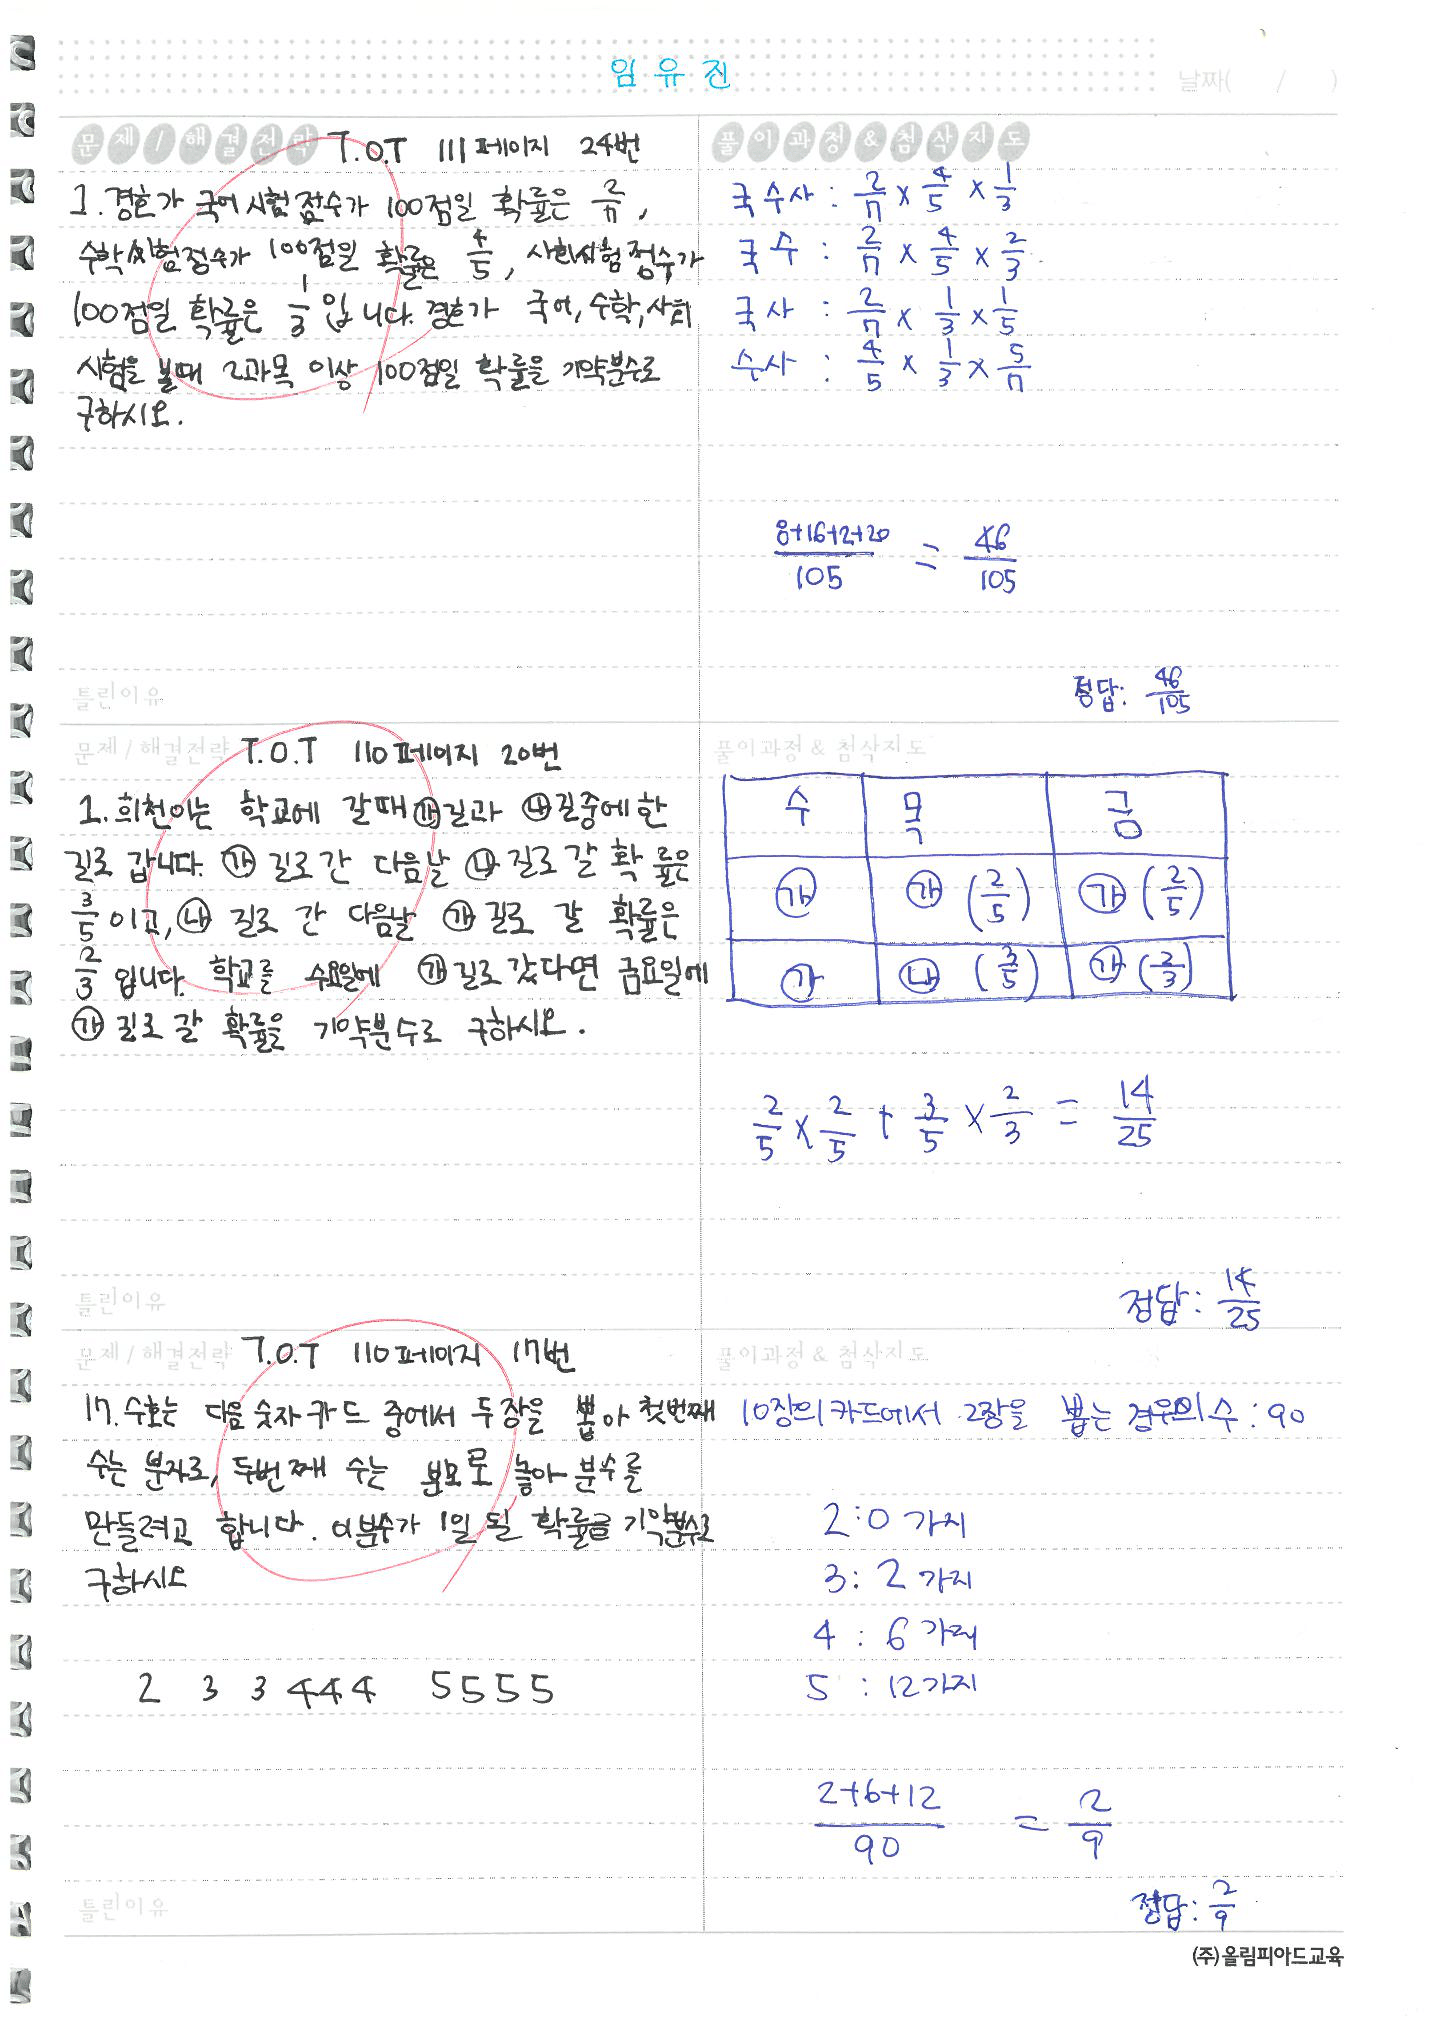 임유진
날짜( / )
문제/해결전략 T.O.T 111페이지 24번
1. 경호가 국어시험 점수가 100점일 확률은 2/7,
수학시험점수가 100점일 확률은 4/5, 사회시험점수가
100점일 확률은 1/3입니다. 경호가 국어, 수학, 사회
시험을 볼때 2과목 이상 100점일 확률을 기약분수로
구하시오.
틀린이유
풀이과정&첨삭지도
국수사 : 2/7 × 4/5 × 1/3
국수 : 2/7 × 4/5 × 2/3
국사 : 2/7 × 1/3 × 1/5
수사 : 4/5 × 1/3 × 5/7
8+16+2+20/105 = 46/105
정답: 46/105
문제/해결전략 T.O.T 110페이지 20번
1. 희천이는 학교에 갈때 ㉮길과 ㉯길중에 한
길로 갑니다. ㉮ 길로 간 다음날 ㉯ 길로 갈 확률은
3/5이고, ㉯ 길로 간 다음날 ㉮ 길로 갈 확률은
2/3입니다. 학교를 수요일에 ㉮길로 갔다면 금요일에
㉮ 길로 갈 확률을 기약분수로 구하시오.
틀린이유
풀이과정 & 첨삭지도
수 목 금
㉮ ㉮ (2/5) ㉮ (2/5)
㉮ ㉯ (3/5) ㉮ (2/3)
2/5 × 2/5 + 3/5 × 2/3 = 14/25
정답: 14/25
문제/해결전략 T.O.T 110페이지 17번
17. 수호는 다음 숫자 카드 중에서 두장을 뽑아 첫번째
수는 분자로, 두번째 수는 분모로 놓아 분수를
만들려고 합니다. 이분수가 1일 될 확률을 기약분수로
구하시오
2 3 3 4 4 4 5 5 5 5
틀린이유
풀이과정 & 첨삭지도
10장의 카드에서 2장을 뽑는 경우의 수 : 90
2 : 0 가지
3 : 2 가지
4 : 6 가지
5 : 12가지
2+6+12/90 = 2/9
정답: 2/9
(주)올림피아드교육